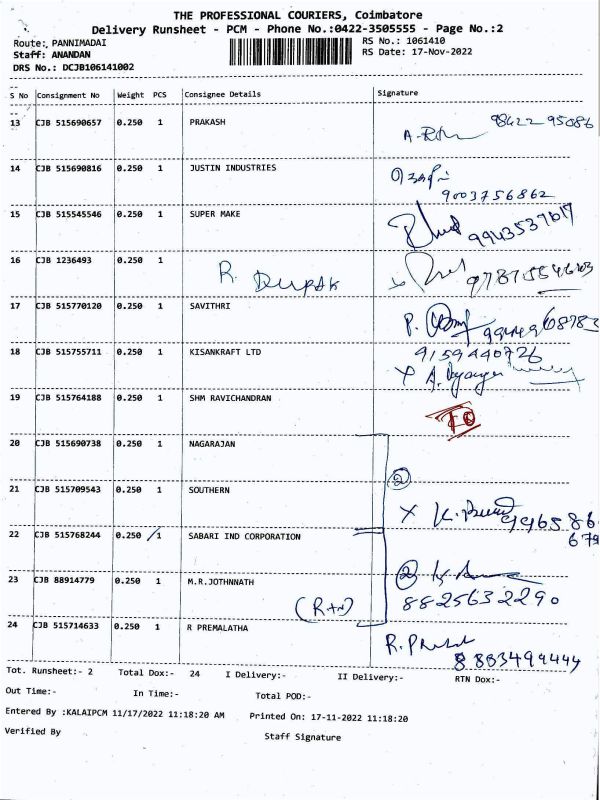 THE PROFESSIONAL COURIERS, Coimbatore
Delivery Runsheet - PCM - Phone No.:0422-3505555 - Page No.:2
Route: PANNIMADAI RS No.: 1061410
Staff: ANANDAN RS Date: 17-Nov-2022
DRS No.: DCJB106141002
S No Consignment No Weight PCS Consignee Details Signature
13 CJB 515690657 0.250 1 PRAKASH 98422 95086
14 CJB 515690816 0.250 1 JUSTIN INDUSTRIES
9003756862
15 CJB 515545546 0.250 1 SUPER MAKE
16 CJB 1236493 0.250 1 R. DEEPAK
17 CJB 515770120 0.250 1 SAVITHRI
18 CJB 515755711 0.250 1 KISANKRAFT LTD 9159440726
19 CJB 515764188 0.250 1 SHM RAVICHANDRAN
20 CJB 515690738 0.250 1 NAGARAJAN
21 CJB 515709543 0.250 1 SOUTHERN
22 CJB 515768244 0.250 1 SABARI IND CORPORATION
23 CJB 88914779 0.250 1 M.R.JOTHNNATH
8825632290
24 CJB 515714633 0.250 1 R PREMALATHA
Tot. Runsheet:- 2 Total Dox:- 24 I Delivery:- II Delivery:- RTN Dox:-
Out Time:- In Time:- Total POD:-
Entered By :KALAIPCM 11/17/2022 11:18:20 AM Printed On: 17-11-2022 11:18:20
Verified By Staff Signature